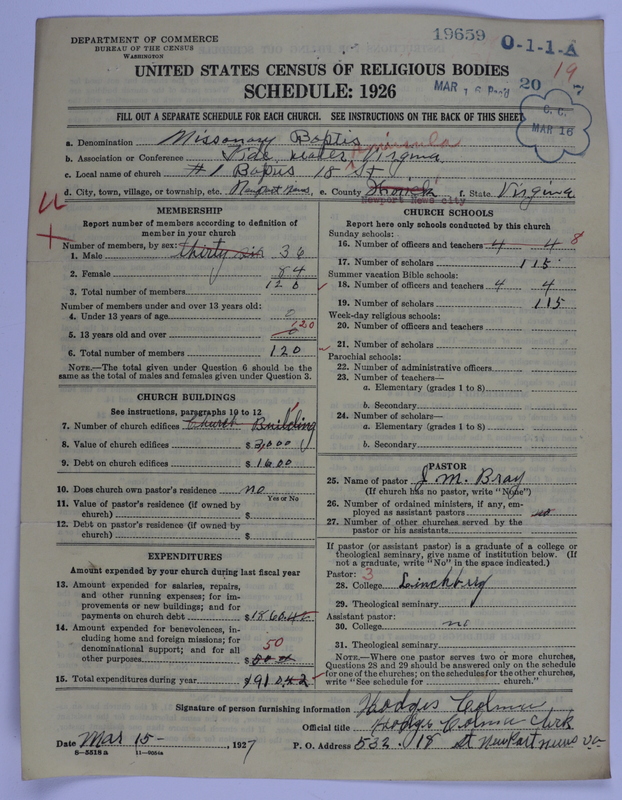 DEPARTMENT OF COMMERCE
BUREAU OF THE CENSUS
WASHINGTON
19659
O-1-1-A
19
MAR 16 Rec'd 20 7
C. C.
MAR 16
UNITED STATES CENSUS OF RELIGIOUS BODIES
SCHEDULE: 1926
FILL OUT A SEPARATE SCHEDULE FOR EACH CHURCH. SEE INSTRUCTIONS ON THE BACK OF THIS SHEET
a. Denomination Missonary Baptis
b. Association or Conference Tide water Peninsula Virginia
c. Local name of church #1 Baptis 18 St
d. City, town, village, or township, etc. Newport News e. County f. State Virginia
Newport News city
MEMBERSHIP
Report number of members according to definition of
member in your church
Number of members, by sex:
1. Male thirty six 36
2. Female 84
3. Total number of members 120
Number of members under and over 13 years old:
4. Under 13 years of age 0
5. 13 years old and over 0 120
6. Total number of members 120
NOTE.—The total given under Question 6 should be
same as the total of males and females given under Question 3.
CHURCH BUILDINGS
See instructions, paragraphs 10 to 12
7. Number of church edifices Church Building
8. Value of church edifices $ 3,000
9. Debt on church edifices $ 1600
10. Does church own pastor's residence no
Yes or No
11. Value of pastor's residence (if owned by
church) $
12. Debt on pastor's residence (if owned by
church) $
EXPENDITURES
Amount expended by your church during last fiscal year
13. Amount expended for salaries, repairs,
and other running expenses; for im-
provements or new buildings; and for
payments on church debt $1860.42
14. Amount expended for benevolences, in-
cluding home and foreign missions; for
denominational support; and for all
other purposes $ 50
15. Total expenditures during year $1910.42
CHURCH SCHOOLS
Report here only schools conducted by this church
Sunday schools:
16. Number of officers and teachers 4 4 8
17. Number of scholars 115
Summer vacation Bible schools:
18. Number of officers and teachers 4 4
19. Number of scholars 115
Week-day religious schools:
20. Number of officers and teachers
21. Number of scholars
Parochial schools:
22. Number of administrative officers
23. Number of teachers—
a. Elementary (grades 1 to 8)
b. Secondary
24. Number of scholars—
a. Elementary (grades 1 to 8)
b. Secondary
PASTOR
25. Name of pastor J. M. Bray
(If church has no pastor, write "None")
26. Number of ordained ministers, if any, em-
ployed as assistant pastors no
27. Number of other churches served by the
pastor or his assistants
If pastor (or assistant pastor) is a graduate of a college or
theological seminary, give name of institution below. (If
not a graduate, write "No" in the space indicated.)
Pastor: 3
28. College Linchberg
29. Theological seminary
Assistant pastor:
30. College no
31. Theological seminary
NOTE.—Where one pastor serves two or more churches,
Questions 28 and 29 should be answered only on the schedule
for one of the churches; on the schedules for the other churches,
write "See schedule for church."
Signature of person furnishing information Hodges Colman
Official title Hodges Colman Clerk
Date Mar 15-, 1927 P. O. Address 532. 18 St Newport News Va.
8-5518a 11-9054a